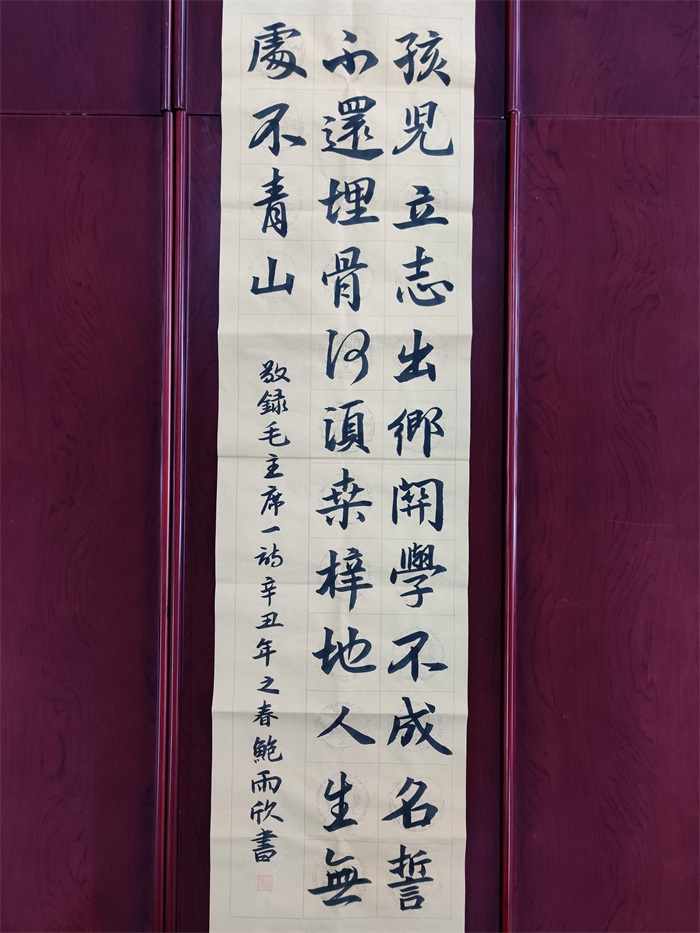 孩児立志出鄉関學不成名誓
不還埋骨何須桒梓地人生無
處不青山
敬録毛主席一詩辛丑年之春鲍雨欣書